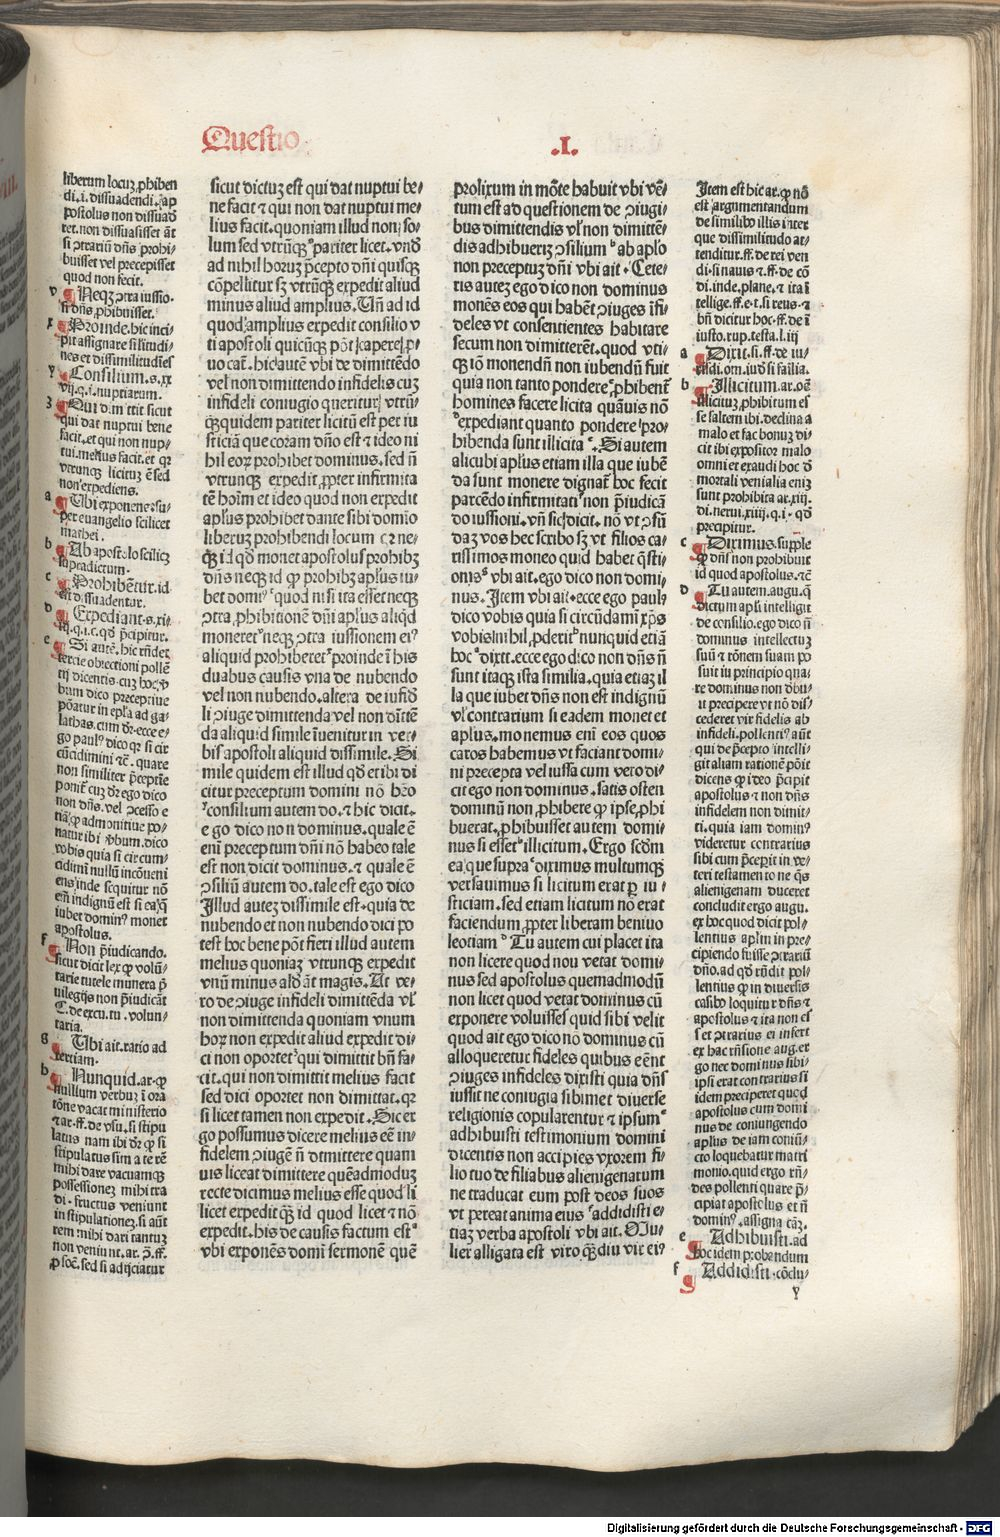 Questio .I.
liberum locuꝫ ꝓhiben
di.i.dissuadendi.ap
postolus non dissuad
ret.non dissuasisset āt
si ↄtrariū dn̄s prohi/
buisset vel precepisset
quod non fecit.
v Neqꝫ ↄtra iussio.
si dn̄s ꝓhibuisset.
x Proinde.hic inci/
pit assignare silitudi/
nes et dissimilitudies
y Consilium.s.xx
vij.q.i.nuptiarum.
z Qui d im ttit sicut
qui dat nuptui bene
facit.et qui non nup/
tui.melius facit.et qꝛ
vtrunqꝫ licituꝫ ē sed
non expediens.
a Vbi exponens su/
per euangelio scilicet
mathei.
b Ab apostolo scilicꝫ
supradictum.
c Prohibentur.id
est dissuadentur.
d Expediant.s.xi/
iij.q.i.c.qđ p̄cipitur.
e Si autē.hic rn̄det
tercie obiectioni pollē
tij dicentis cuꝫ hoc ꝟ
bum dico preceptiue
ponatur in epl̄a ad ga/
lathas.cum dr̄.ecce e/
go paulꝰ dico qꝛ si cir
cūcidimini ⁊c̄.quare
non similiter p̄ceptīe
ponit̄ cuꝫ dr̄ ego dico
non dn̄s.vel ↄcesso e
tiā ꝙ admonitiue po/
natur ibi ꝟbum.dico
vobis quia si circum/
cidimī nullū incōueni
ens inde sequitur nō
em̄ indignū est si ea q̄
iubet dominꝰ monet
apostolus.
f Non p̄iudicando.
sicut dicit lex ꝙ volū/
tarie tutele munera p̄
uilegijs non p̄iudicāt
C.de excu.tu.volun/
taria.
g Vbi ait.ratio ad
tertiam.
h Nunquid.ar.ꝙ
nullum verbuꝫ ī ora
tōne vacat ministerio
⁊ ar.ff.de vsu.si stipu
latus nam ibi dr̄ ꝙ si
stipulatus sim a te rē
mihi dare vacuamqꝫ
possessioneꝫ mihi tra
di.fructus veniunt
in stipulationeꝫ.si aūt
rem mihi dari tantuꝫ
non veniunt.ar.p̄.ff.
ꝓ soc̄.sed si adijciatur
sicut dictuꝫ est qui dat nuptui be/
ne facit ⁊ qui non dat nuptui me/
lius facit.quoniam illud non so/
lum sed vtrūqꝫ pariter licet.vnđ
ad nihil horuꝫ p̄cepto dn̄i quisqꝫ
cōpellitur sꝫ vtrūqꝫ expedit aliud
minus aliud amplius.Vn̄ ad id
quod amplius expedit consilio v
ti apostoli quicūqꝫ pōt capere ꝓ/
uocat.hic autē vbi de dimittēdo
vel non dimittendo infidelis cuꝫ
infideli coniugio queritur vtrū/
qꝫquidem pariter licitū est per iu
sticiā que coram dn̄o est ⁊ ideo ni
hil eoꝝ prohibet dominus.sed n̄
vtrunque expedit ꝓpter infirmita
tē hoīm et ideo quod non expedit
apl̄us prohibet dante sibi domīo
liberuꝫ prohibendi locum qꝛ ne/
qꝫ id qđ monet apostolus prohibꝫ
dn̄s neqꝫ id ꝙ prohibꝫ apl̄us iu/
bet domi̾ quod nisi ita esset neqꝫ
ↄtra ꝓhibitionē dn̄i apl̄us aliqđ
moneret neqꝫ ↄtra iussionem eiꝰ
aliquid prohiberet proinde ī his
duabus causis vna de nubendo
vel non nubendo.altera de iufiđ
li ↄiuge dimittenda vel non dīttē
da aliquid simile īuenitur in ver/
bis apostoli aliquid dissimile.Si
mile quidem est illud qđ et ibi di
citur preceptum domini nō hēo
consilium autem do.⁊ hic dicit.
e go dico non dominus.quale ē
enī preceptum dn̄i nō habeo tale
est non dicit dominus.⁊ quale ē
ↄsiliū autem do.tale est ego dico
Illud auteꝫ dissimile est.quia de
nubendo et non nubendo dici po
test hoc bene pōt fieri illud autem
melius quoniaꝫ vtrunque expedit
vnū minus alđ āt magis.At ve/
ro de ↄiuge infideli dimittēda vl̄
non dimittenda quoniam vnum
hoꝝ non expedit aliud expedit di/
ci non oportet qui dimittit bn̄ fa/
cit.qui non dimittit melius facit
sed dici oportet non dimittat.qꝛ
si licet tamen non expedit.Sic er
go possumus dicere melius eē in/
fidelem ↄiugē n̄ dimittere quam
uis liceat dimittere quēadmoduꝫ
recte dicimus melius esse quod li
licet expedit qꝫ id quod licet ⁊ nō
expedit.his de causis factum est
vbi exponēs domī sermonē quē
prolixum in mōte habuit vbi vē/
tum est ad questionem de ↄiugi/
bus dimittendis vl̄ non dimittē/
dis adhiberiꝫ ↄsilium ab apl̄o
non preceptuꝫ dn̄i vbi ait.Cete/
ris auteꝫ ego dico non dominus
monēs eos qui habēt ↄiuges īfi/
deles vt consentientes habitare
secum non dimitterēt.quod vti/
qꝫ iō monendū non iubendū fuit
quia non tanto pondere ꝓhibent̄
homines facere licita quāuis nō
expediant quanto pondere pro/
hibenda sunt illicita.Si autem
alicubi apl̄us etiam illa que iubē
da sunt monere dignat̄ hoc fecit
parcēdo infirmitati non p̄iudicā
do iussioni.vn̄ sic dicit.nō vt ↄfū
daꝫ vos hec scribo sꝫ vt filios ca/
rissimos moneo quid habet q̄sti/
onis vbi ait.ego dico non domi/
nus.Item vbi ait ecce ego paulꝰ
dico vobis quia si circūdami xp̄s
vobis nihil ꝓderit nunquid etiā
hoc dixit.ecce ego dico non dn̄s n̄
sunt itaqꝫ ista similia.quia etiaꝫ il
la que iubet dn̄s non est indignū
vl̄ contrarium si eadem monet et
aplus.monemus enī eos quos
caros habemus vt faciant domi/
ni precepta vel iussa cum vero di/
cit ego non dominus.satis osten
dominū non ꝓhibere ꝙ ipse ꝓhi
buerat.ꝓhibuisset autem domi/
nus si esset illicitum.Ergo scdm̄
ea que supra diximus multumqꝫ
versauimus si licitum erat ꝑ iu/
sticiam.sed etiam licitum nō erat
faciendum ꝓpter liberam beniuo
leotiam Tu autem cui placet ita
non licere quod nou vetat domi/
nus sed apostolus quemadmodū
non licet quod vetat dominus cū
exponere voluisses quid sibi velit
quod ait ego dico nō dominus cū
alloqueretur fideles quibus eēnt
ↄiuges infideles dixisti quia dn̄s
iussit ne coniugia sibimet diuerse
religionis copularentur ⁊ ipsum
adhibuisti testimonium domini
dicentis non accipies vxorem fi/
lio tuo de filiabus alienigenarum
ne traducat eum post deos suos
vt pereat anima eius addidisti e/
tiaꝫ verba apostoli vbi ait.Mu/
lier alligata est viro qꝫdiu vir eiꝰ
Item est hic ar.ꝙ nō
est argumentandum
de similibꝰ illis inter
que dissimilitudo at/
tenditur.ff.de rei ven
di.si nauis ⁊.ff.de cō
di.inde.plane.⁊ ita ī
tellige.ff.e.t.si reus.⁊
bn̄ dicitur hoc.ff.de ī
iusto.rup.testa.l.iij
a Dixi.si.ff.de iu/
risdi.om.iuđ si failia.
b Illicitum.ar.oēt
illicituꝫ ꝓhibitum es
se saltem ibi.declina a
malo et fac bonuꝫ di/
cit ibi expositor malo
omni et exaudi hoc đ
mortali venialia enīꝫ
sunt prohibita ar.xiij.
di.nerui.xiiij.q.i.qđ
precipitur.
c Diximus.supple
ꝙ dn̄s non prohibuit
id quod apostolus.⁊c̄
d Tu autem.augu.q̄
dictum apl̄i intelligit
de consilio.ego dico n̄
dominus intellectuꝫ
suū ⁊ rōnem suam po
suit iu principio qua/
re dominus non dbu/
it precipere vt nō dis/
cederet vir fidelis ab
infideli.pollentiꝰ aūt
qui de p̄cepto intelli/
git aliam rationē pōit
dicens ꝙ ideo p̄cipit
apostolus ⁊ non dn̄s
infidelem non dimit/
ti.quia iam dominꝰ
videretur contrarius
sibi cum p̄ceperit in ve/
teri testamento ne q̄s
alienigenam duceret
concludit ergo augu.
ex hoc quod dicit pol/
lentius apl̄m in pre/
cipiendo fuisse ↄtrariū
dn̄o.ad qđ rn̄dit pol/
lentius ꝙ in diuersis
casibꝰ loquitur dn̄s ⁊
apostolus ⁊ ita non es
set ↄtrarius ei infert
ex hac rn̄sione aug.er
go nec dominus sibi/
ipsi erat contrarius si
idem preciperet quod
apostolus cum domi
nus de coniungendo
aplus de iam coniū/
cto loquebatur matri
monio.quid ergo rn̄/
des pollenti quare p̄/
cipiat apostolus et n̄
dominꝰ.assigna cāꝫ.
e Adhibuisti.ad
hoc idem probandum
f Addidisti.cōclu/
y
Digitalisierung gefördert durch die Deutsche Forschungsgemeinschaft - DFG